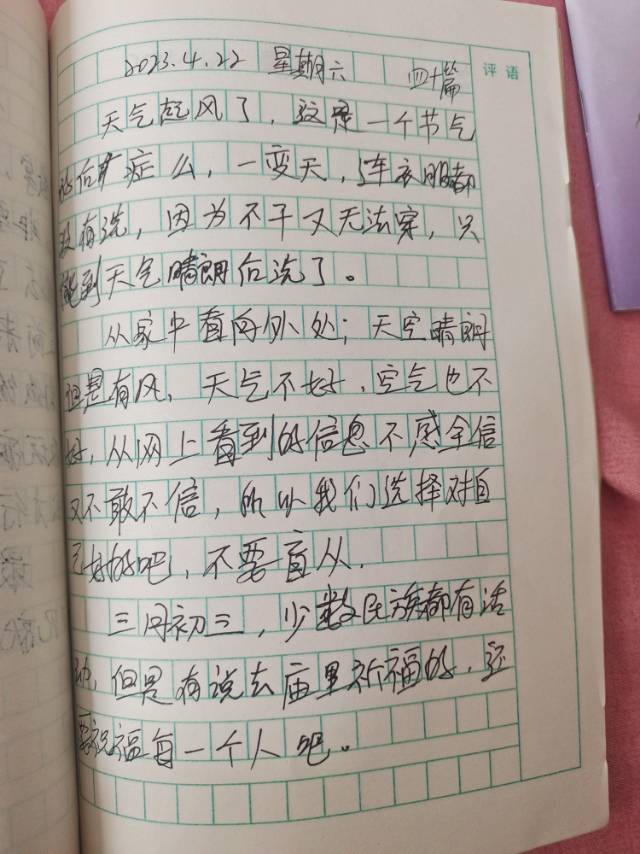 评语
2023.4.22 星期六 四十篇
天气起风了，这是一个节气
的后旷症么，一变天，连衣服都
没有洗，因为不干又无法穿，只
能到天气晴朗后洗了。
从家中看向外处；天空晴朗
但是有风，天气不好，空气也不
好，从网上看到的信息不感全信
又不敢不信，所以我们选择对自
己好的吧，不要盲从.
三月初三，少数民族都有活
动，但是有说去庙里祈福的，还
要祝福每一个人吧。